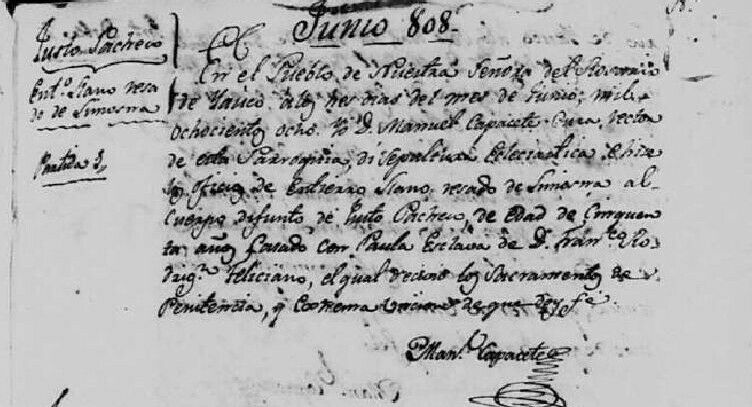 Junio 808.
Justo Pacheco
Entº llano reza
do de Limosna
Partida 3,
En el Pueblo de Nuestra Señora del Rosario
de Yauco, a los tres dias del mes de Junio, mil
ochocientos ocho. Yo D. Manuel Capacete Cura rector
de esta Parroquia, di Sepultura Eclesiastica é hize
los Oficios de Entierro llano, resado de Limosna al
Cuerpo difunto de Justo Pacheco, de edad de Cinquen
ta años Casado con Paula Esclava de D. Franco Ro
drigz Feliciano, el qual recivio los Sacramentos de
Penitencia, y Extrema uncion de que doy fe.
Manl Capacete